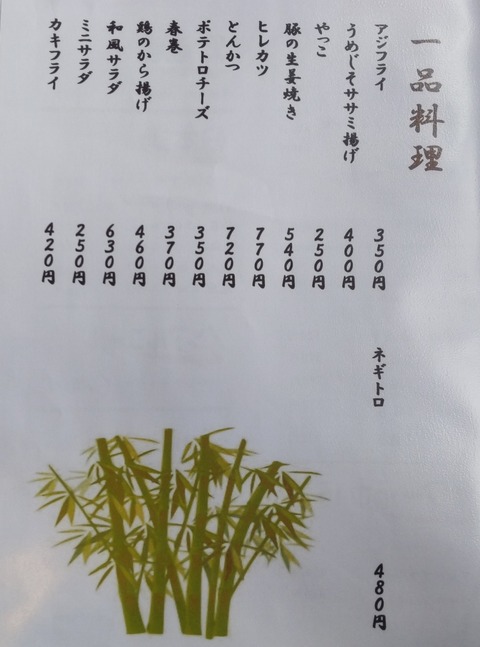 一品料理
アジフライ 350円
うめじそササミ揚げ 400円
やっこ 250円
豚の生姜焼き 540円
ヒレカツ 770円
とんかつ 720円
ポテトロチーズ 350円
春巻 370円
鶏のから揚げ 460円
和風サラダ 630円
ミニサラダ 250円
カキフライ 420円
ネギトロ 480円